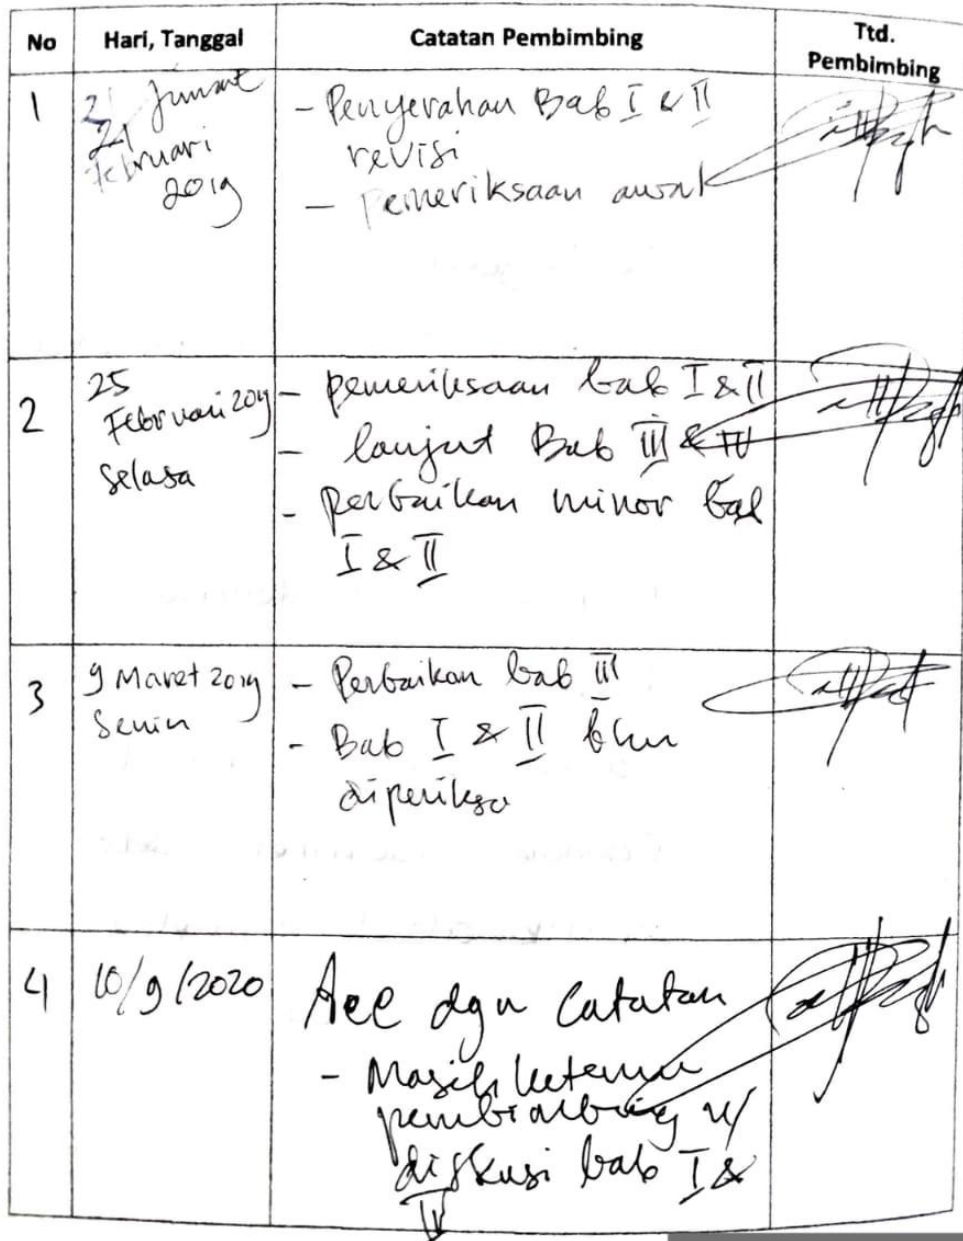 No Hari, Tanggal Catatan Pembimbing Ttd. Pembimbing
1
2 Jumat
21
Februari
2019
- Penyerahan Bab I & II
revisi
- Pemeriksaan awal
2
25
Februari 2019
Selasa
- pemeriksaan bab I & II
- lanjut Bab III & IV
- perbaikan minor bab
I & II
3
9 Maret 2019
Senin
- Perbaikan bab III
- Bab I & II blm
diperiksa
4
10/9/2020
Acc dgn catatan
- Masih ketemu
pembimbing u/
diskusi bab I &
IV